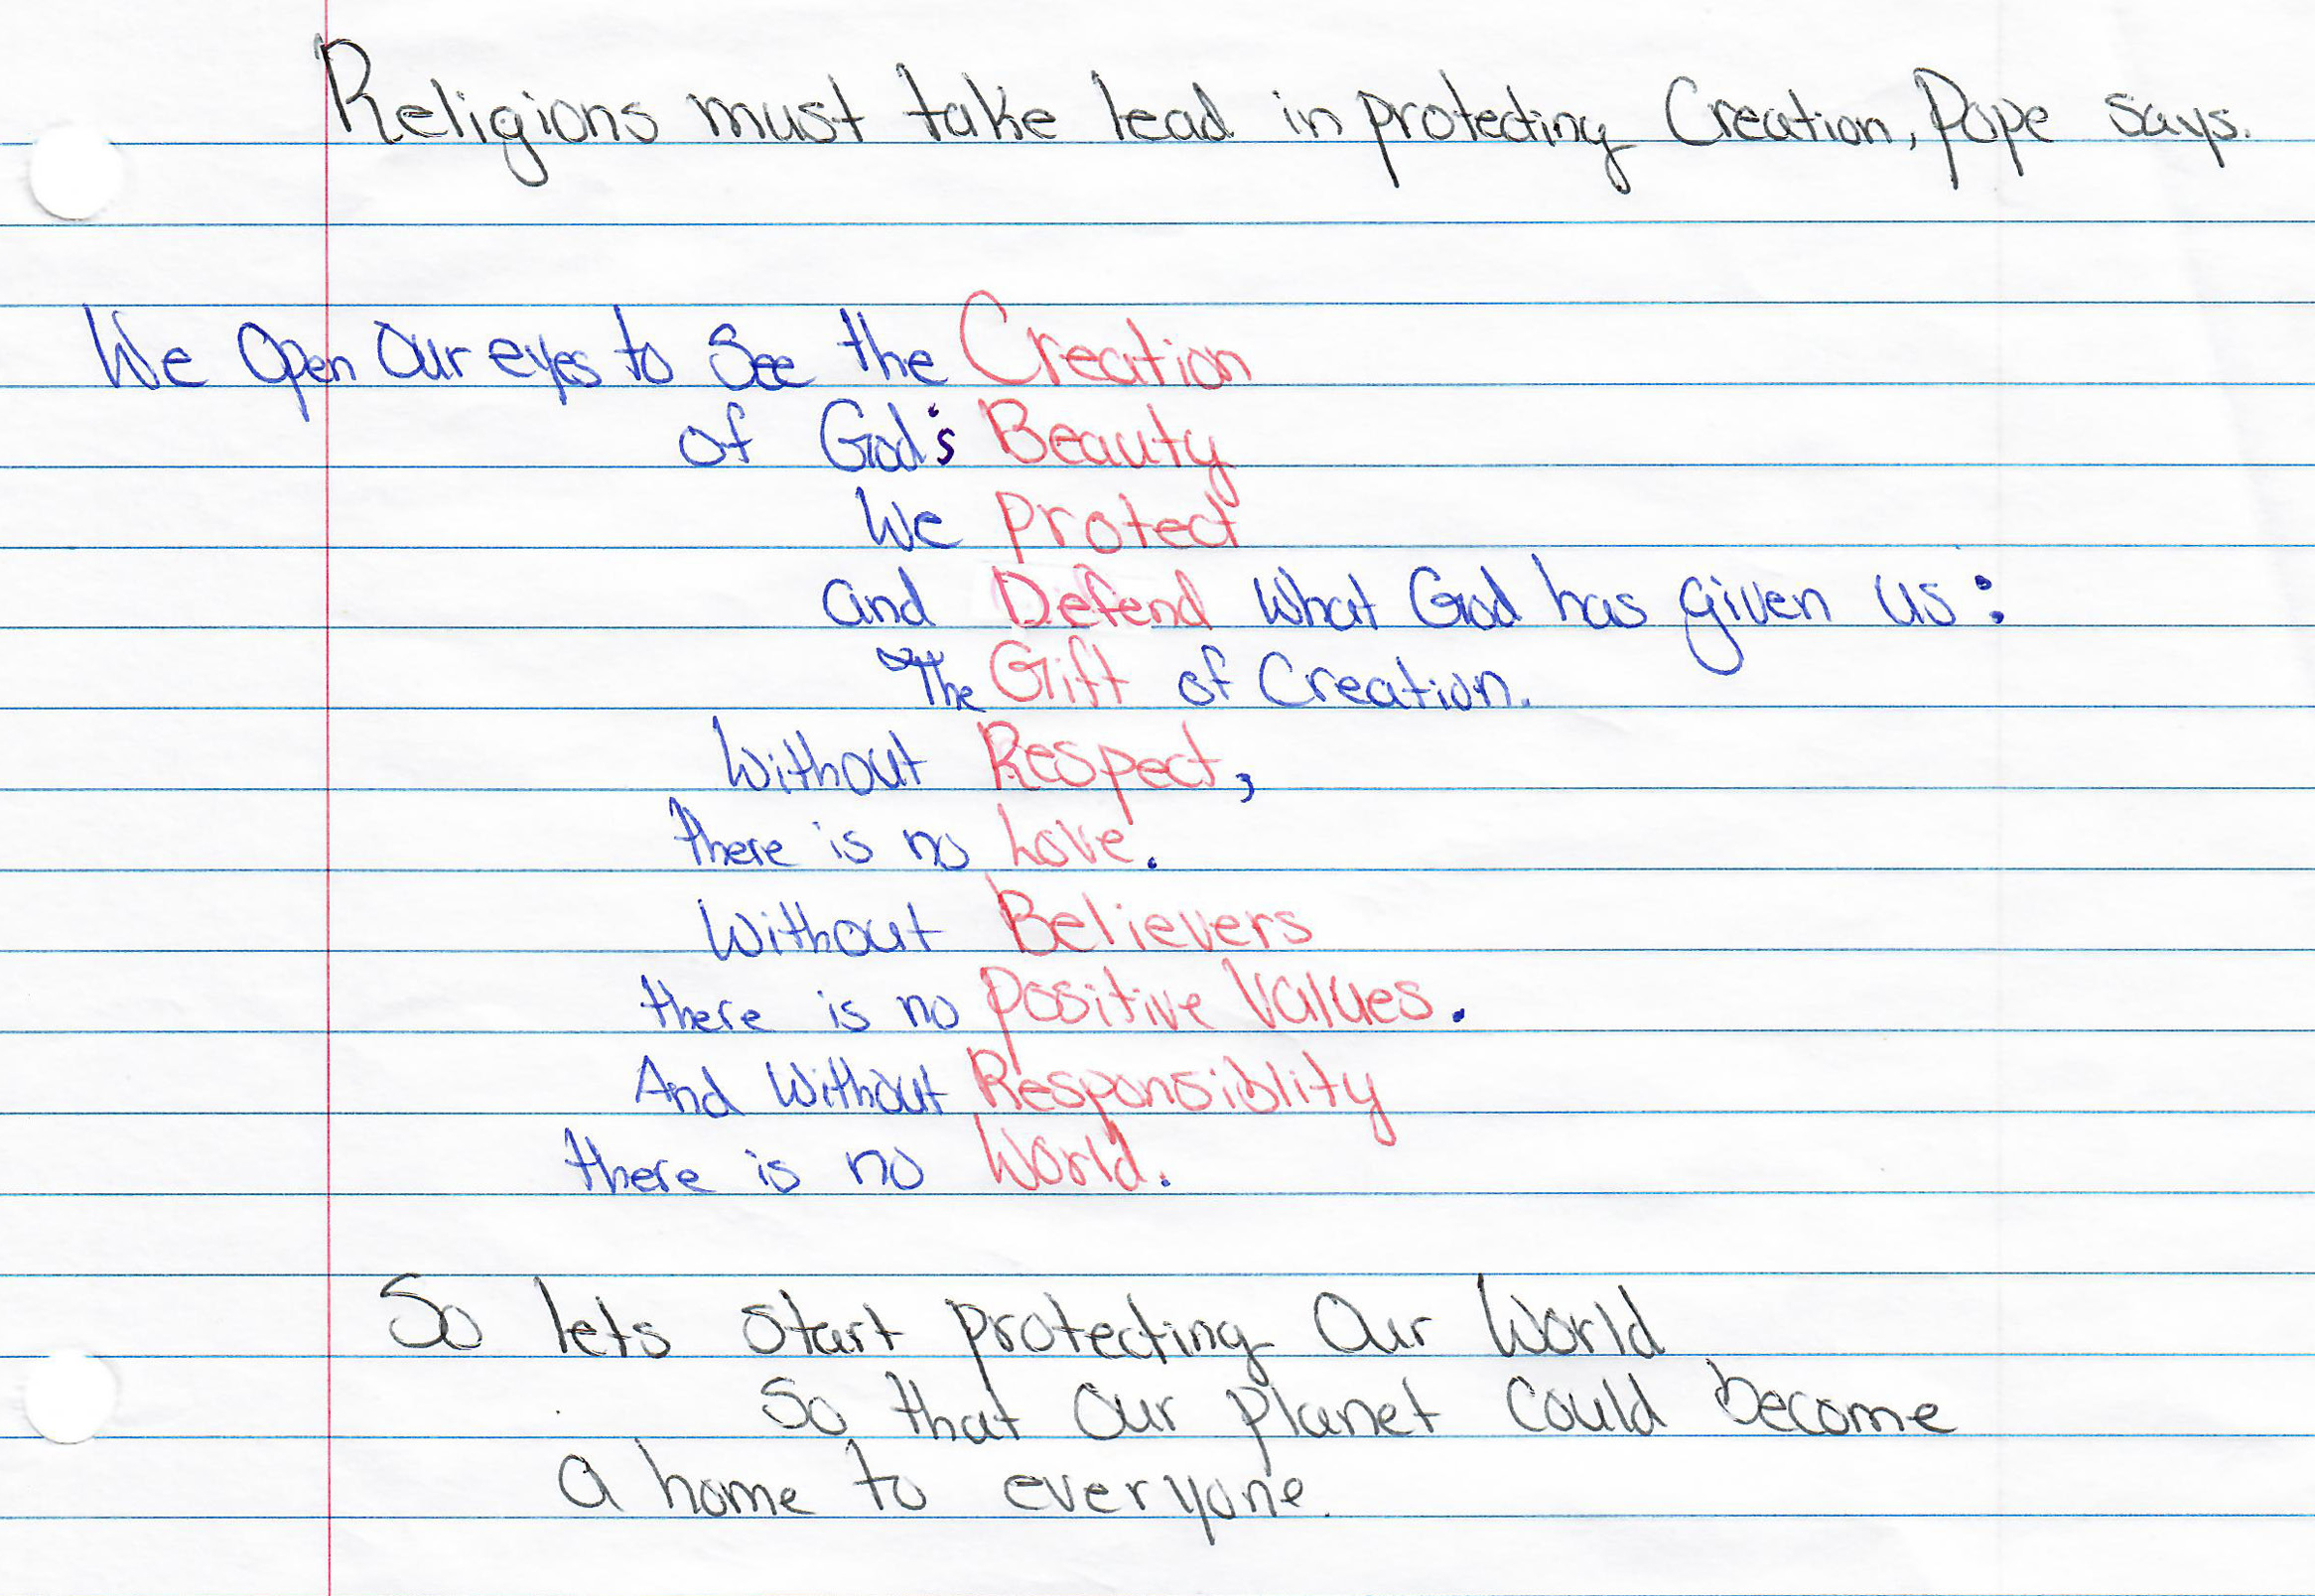 Religions must take lead in protecting Creation, Pope says.
We Open Our eyes to See the Creation
of God's Beauty
We Protect
and Defend What God has given us:
The Gift of Creation.
Without Respect,
there is no Love.
Without Believers
there is no Positive Values.
And Without Responsiblity
there is no World.
So lets start protecting Our World
so that our planet could become
a home to everyone.